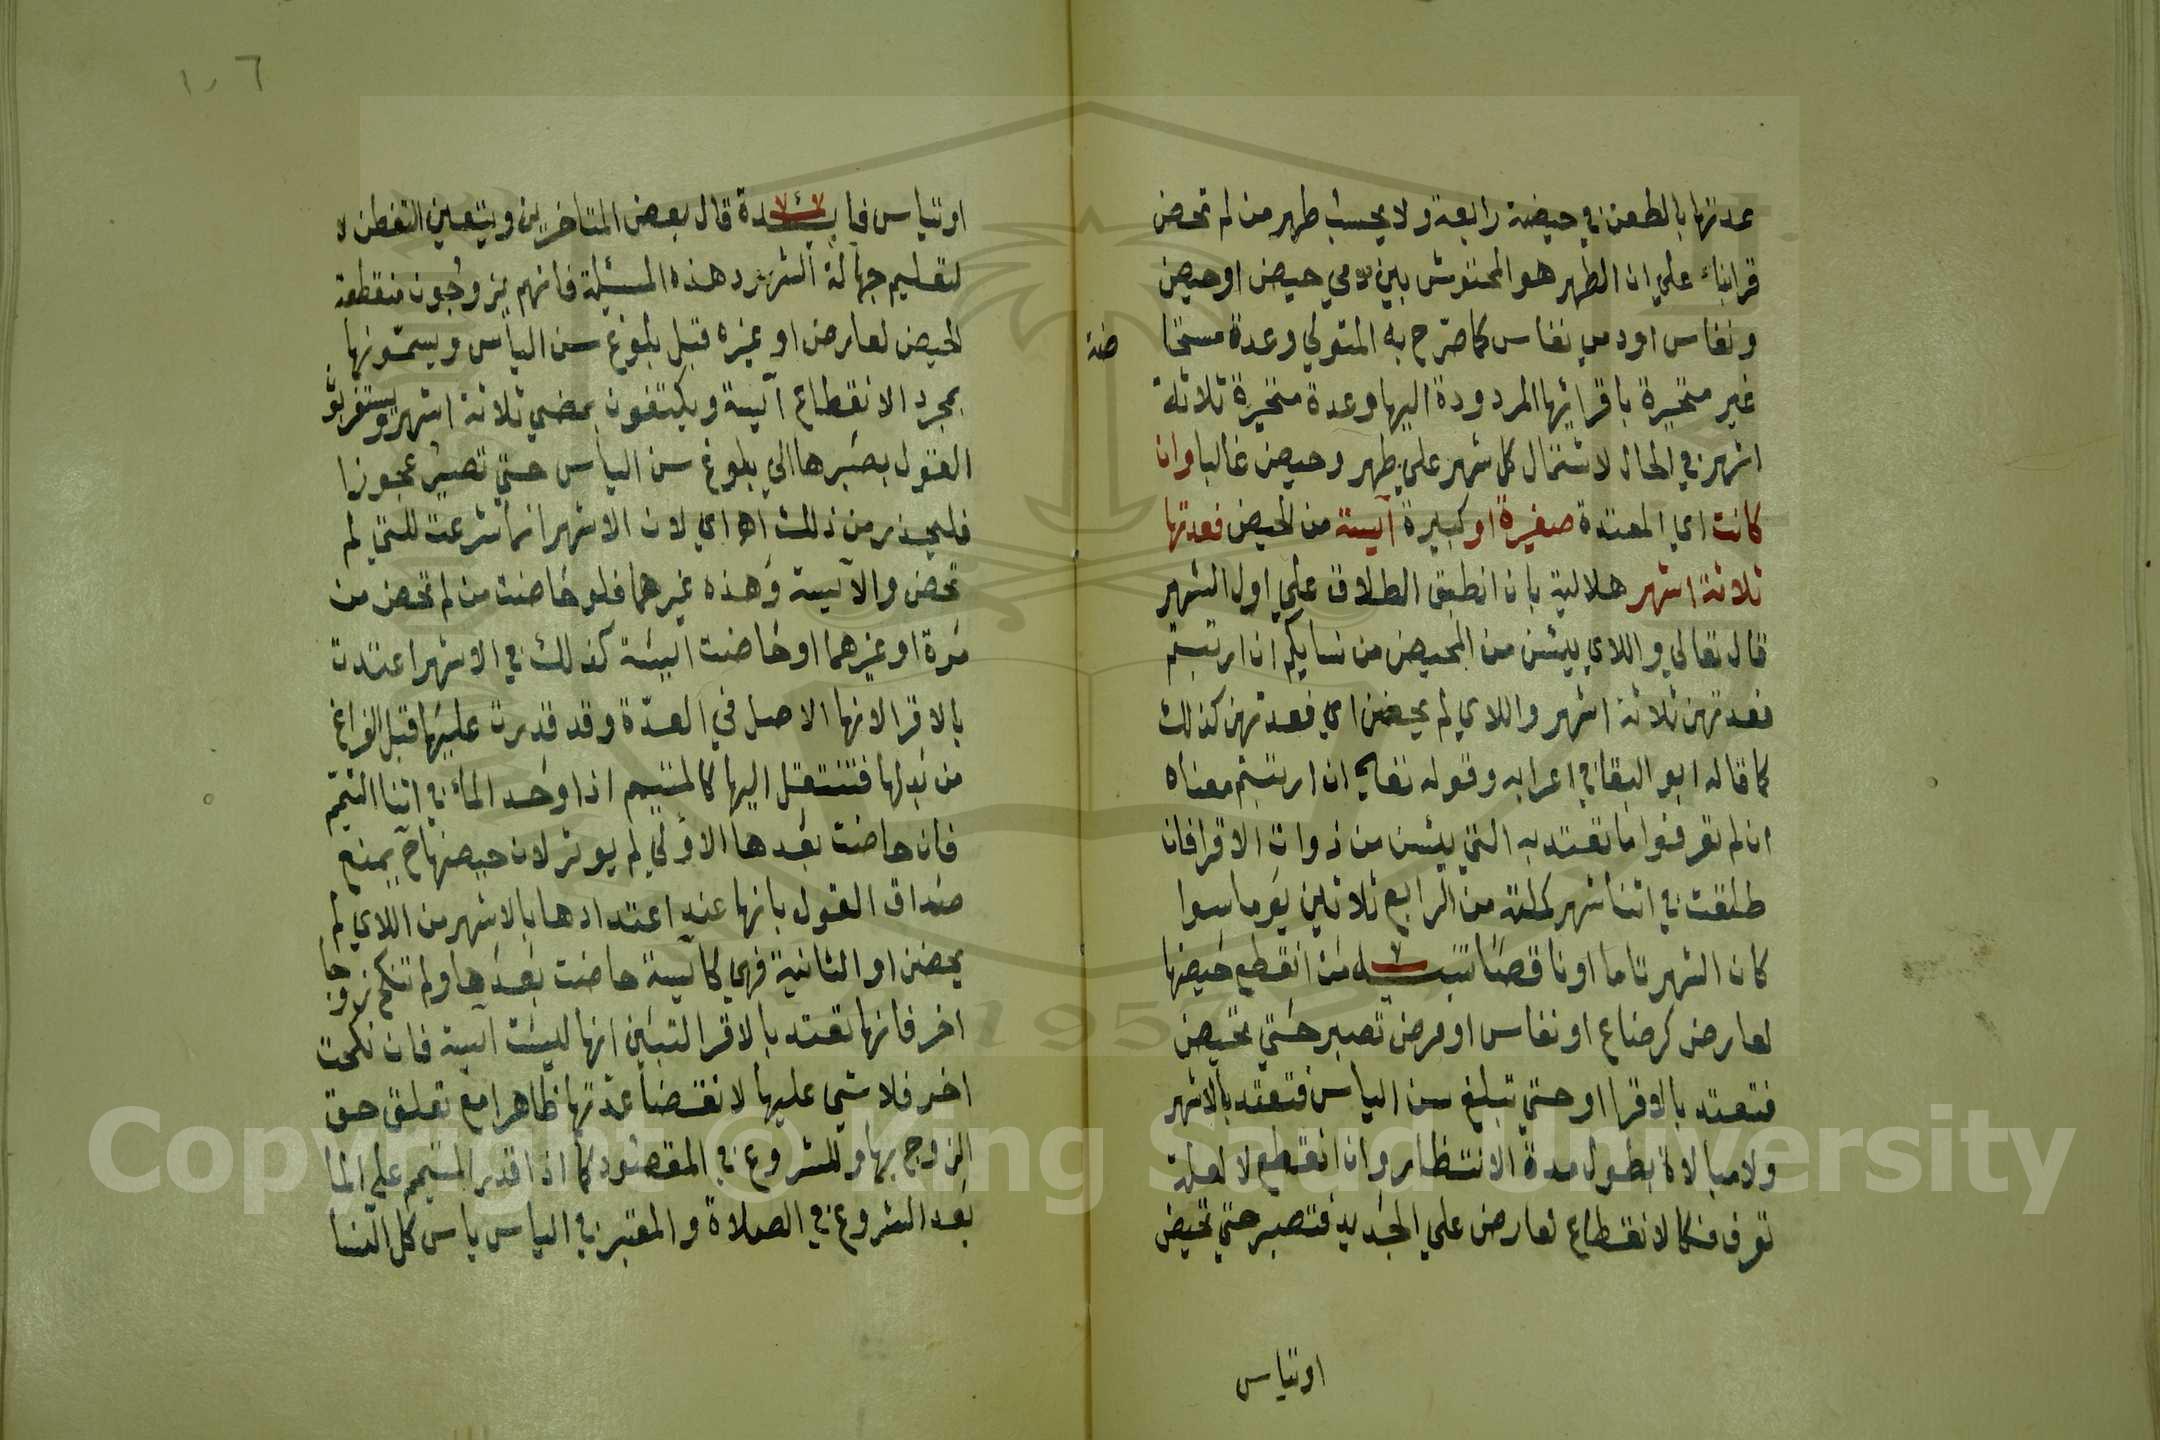 عدتها بالطعن في حيضة رابعة ولا يحسب طهر من لم تحض
قرا بناء علي ان الطهر هو المحتوش بين دمي حيض او حيض
ونفاس او دمي نفاس كما صرح به المتولي وعدة مستحا
ضة
غير متحيرة باقرائها المردودة اليها وعدة متحيرة ثلاثة
اشهر في الحال لاشتمال كل شهر علي طهر وحيض غالبا وان
كانت اي المعتدة صغيرة او كبيرة آيسة من الحيض فعدتها
ثلاثة اشهر هلالية بان انطبق الطلاق علي اول الشهر
قال تعالي واللاي ييئسن من المحيض من نسايكم ان ارتبتم
فعدتهن ثلاثة اشهر واللاي لم يحضن اي فعدتهن كذلك
كما قاله ابو البقا في اعرابه وقوله تعالي ان ارتبتم معناه
ان لم تعرفوا ما تعتد به التي يئسن من ذوات الاقرا فان
طلقت في اثنا شهر كملته من الرابع ثلاثين يوما سوا
كان الشهر تاما او ناقصا تنبيه من انقطع حيضها
لعارض كرضاع او نفاس او مرض تصبر حتي تحيض
فتعتد بالاقرا او حتي تبلغ سن الياس فتعتد بالاشهر
ولا مبالاة بطول مدة الانتظار وان انقطع لا لعلة
تعرف فكالانقطاع لعارض علي الجديد فتصبر حتي تحيض
او تياس
١٠٦
او تياس فايدة قال بعض المتاخرين ويتعين التفطن
لتعليم جهالة الشهود هذه المسئلة فانهم يزوجون منقطعة
الحيض لعارض او غيره قبل بلوغ سن الياس ويسمونها
بمجرد الانقطاع آيسة ويكتفون بمضي ثلاثة اشهر ويستغربو
القول بصبرها الي بلوغ سن الياس حتي تصير عجوزا
فليحذر من ذلك اه اي لان الاشهر انما شرعت للتي لم
تحض والآيسة وهذه غيرهما فلو حاضت من لم تحض من
مرة او غيرهما او حاضت كذلك في الاشهر اعتدت
بالاقرا لانها الاصل في العدة وقد قدرت عليها قبل الفراغ
من بدلها فتنتقل اليها كالمتيمم اذا وجد الماء في اثنا التيمم
فان حاضت بعدها الاولي لم يوثر لان حيضها ح يمنع
صداق القول بانها عند اعتدادها بالاشهر من اللاي لم
يحضن او الثانية فهي كآيسة حاضت بعدها ولم تنكح زوجا
اخر فانها تعتد بالاقرا لتبين انها ليست آيسة فان نكحت
اخر فلا شي عليها لانقضا عدتها ظاهرا مع تعلق حق
الزوج بها وللشروع في المقصود كما اذا قدر المتيمم علي الما
بعد الشروع في الصلاة والمعتبر في الياس ياس كل النسا